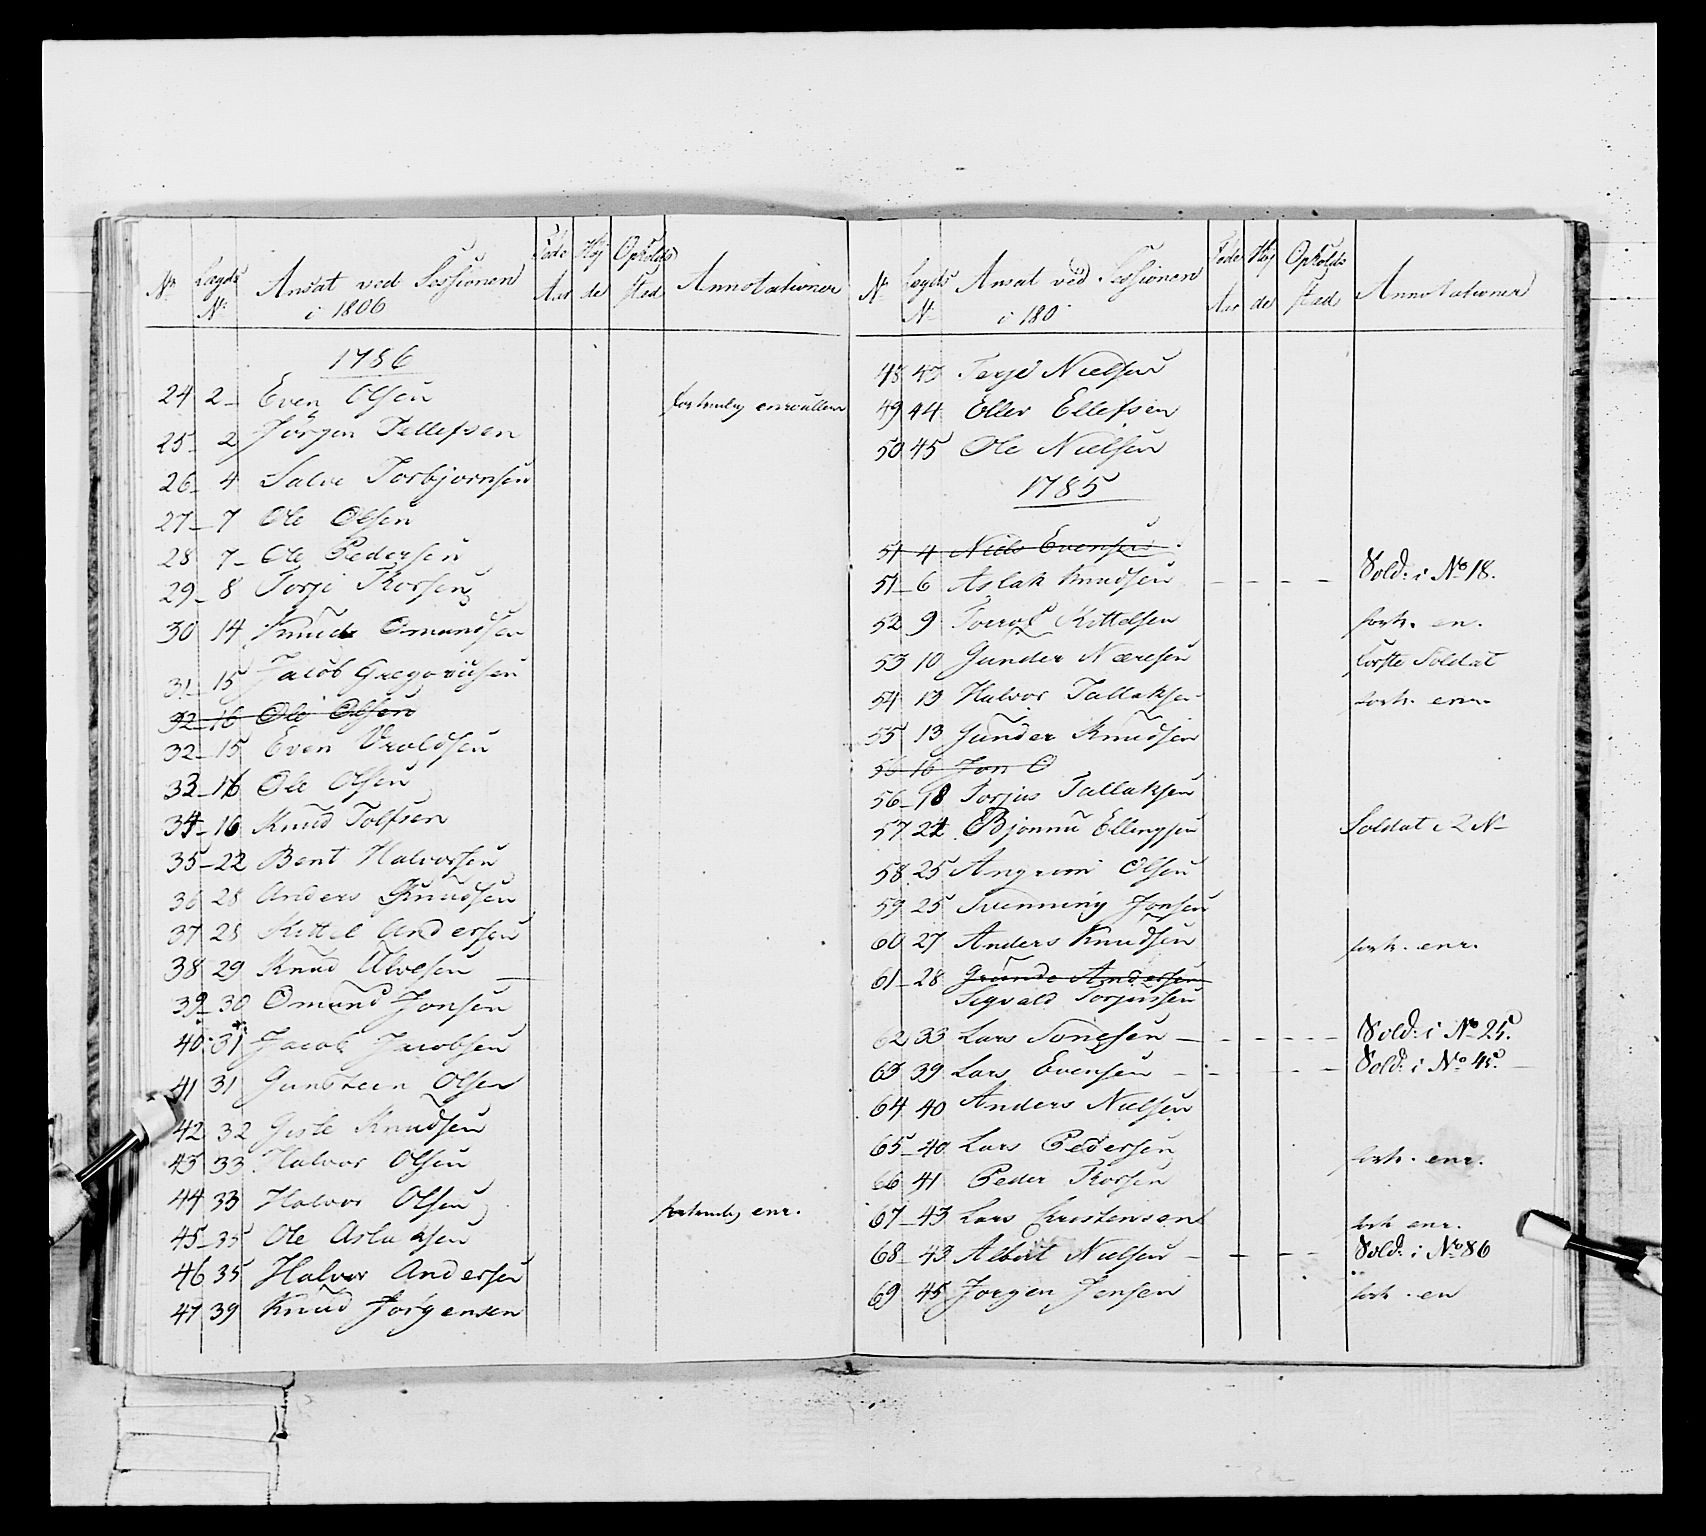 Nr Lægds Nr Ansat ved Sessionen i 1806 Føde Aar Høj de Opholds sted Annotationer
1786
24 2 Even Olsen forhenlig enroulleru
25 2 Jørgen Tellefsen
26 4 Salve Torbjørnsen
27 7 Ole Olsen
28 7 Ole Pedersen
29 8 Torje Thorsen
30 14 Knud Omundsen
31 15 Jacob Gregoriusen
32 16 Ole Olsen
32 15 Even Vraldsen
33 16 Ole Olsen
34 16 Knud Tolfsen
35 22 Bent Halvorsen
36 28 Anders Knudsen
37 28 Kittil Andersen
38 29 Knud Alvesen
39 30 Omund Jonsen
40 31 Jacob Jacobsen
41 31 Gunsteen Olsen
42 32 Knudsen
43 33 Halvor Olsen
44 33 Halvor Olsen forhenlig enr.
45 35 Ole Aslaksen
46 35 Halvor Andersen
47 39 Knud Jørgensen
Nr Lægds Nr Ansat ved Sessionen i 180 Føde Aar Høj de Opholds sted Annotationer
48 43 Terje Nielsen
49 44 Ellev Ellefsen
50 45 Ole Nielsen
1785
51 4 Niels Evensen
51 6 Aslak Knudsen Sold: i No 18.
52 9 Kittelsen forh. en.
53 10 Gunder Næresen Soldat
54 13 Halvor Tallaksen forh. enr.
55 13 Gunder Knudsen
56 16 Jon O
56 18 Torjus Tallaksen
57 24 Bjonnu Ellingsen Soldat i 2 N
58 25 Angrim Olsen
59 25 Svenning Jonsen
60 27 Anders Knudsen forh. enr.
61 28 Andersen
Sigvald Torjussen
62 33 Lars Tonesen Sold: i No 25.
63 39 Lars Evensen Sold: i No 45.
64 40 Anders Nielsen
65 40 Lars Pedersen forh. enr.
66 41 Peder Thorsen
67 43 Lars Christensen forh enr.
68 43 Albert Nielsen Sold: i No 86
69 45 Jørgen Jensen forh. en